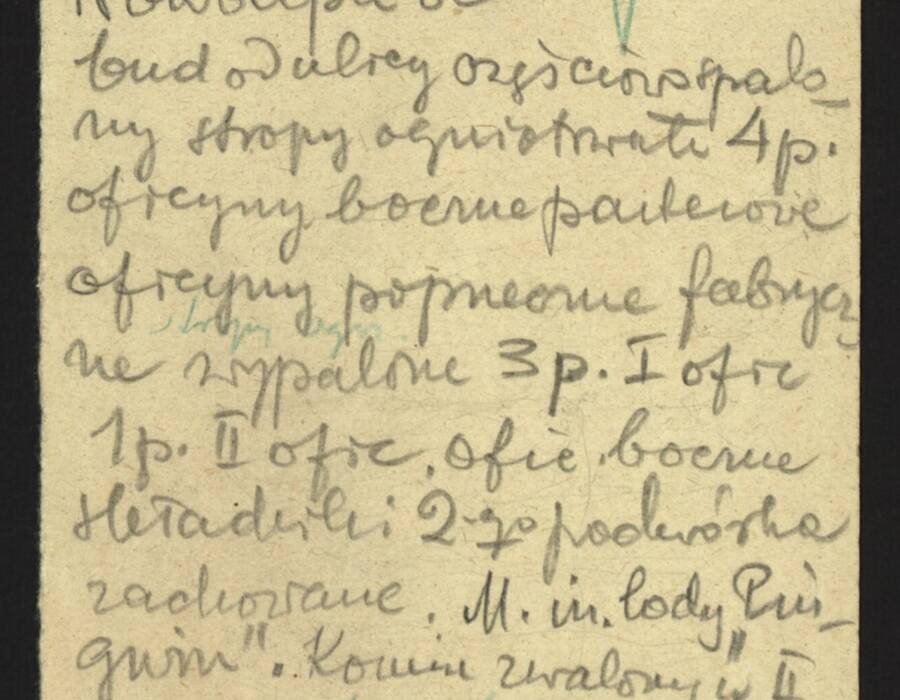 bud od ulicy częściowo spalo-
ny stropy ogniotrwałe 4 p.
oficyny boczne parterowe
oficyny poprzeczne fabrycz
stropy ogn.
ne wypalone 3 p. I ofic
1 p. II ofic. ofic. boczne
składziki 2-go podwórka
zachowane. M. in. lody "Pin-
gwin". Komin zwalony w II